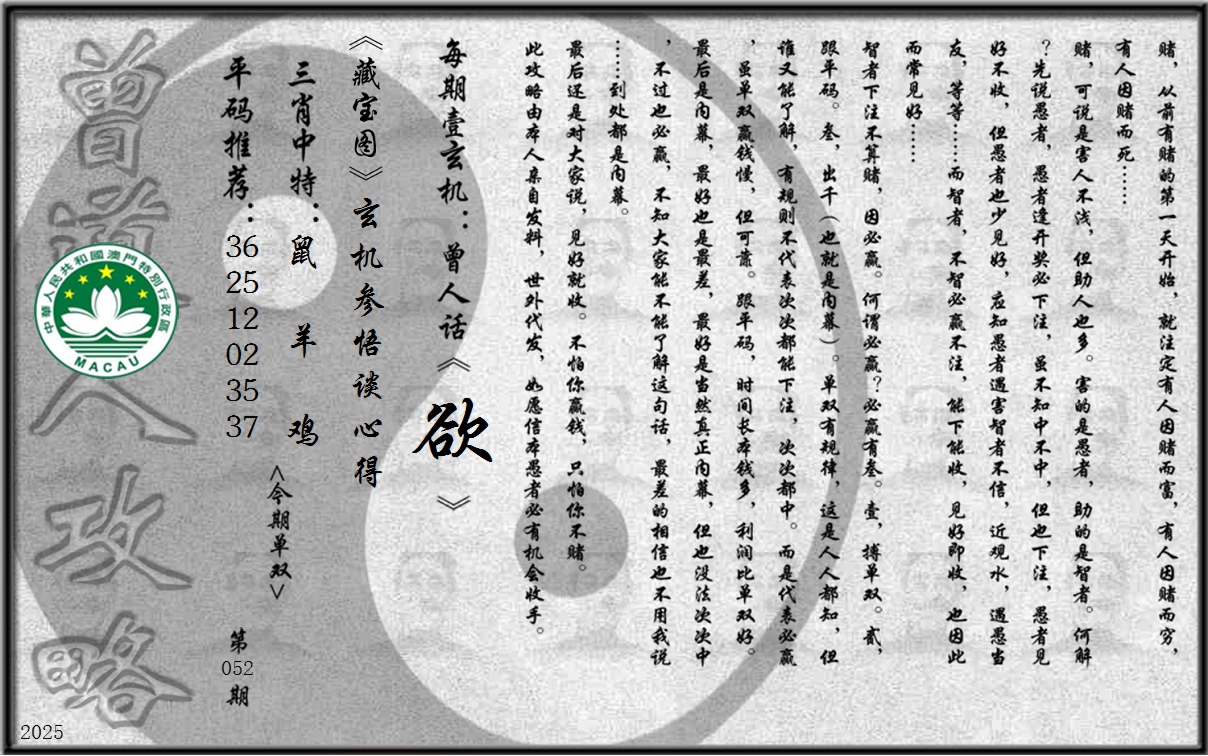 赌，从前有赌的第一天开始，就注定有人因赌而富，有人因赌而穷，
有人因赌而死……
赌，可说是害人不浅，但助人也多。害的是愚者，助的是智者。何解
？先说愚者，愚者逢开奖必下注，虽不知中不中，但也下注，愚者见
好不收，但愚者也少见好，应知愚者遇害智者不信，近观水，遇愚当
友，等等……而智者，不智必赢不注，能下能收，见好即收，也因此
而常见好……
智者下注不算赌，因必赢。何谓必赢？必赢有叁。壹，搏单双。贰，
跟平码。叁，出千（也就是内幕）。单双有规律，这是人人都知，但
谁又能了解，有规则不代表次次都能下注，次次都中。而是代表必赢
，虽单双赢钱慢，但可靠。跟平码，时间长本钱多，利润比单双好。
最后是内幕，最好也是最差，最好是当然真正内幕，但也没法次次中
，不过也必赢，不知大家能不能了解这句话，最差的相信也不用我说
……到处都是内幕。
最后还是对大家说，见好就收。不怕你赢钱，只怕你不赌。
此攻略由本人亲自发料，世外代发，如愿信本愚者必有机会收手。
每期壹玄机：曾人话《欲》
《藏宝图》玄机参悟谈心得
三肖中特：鼠 羊 鸡
<今期单双>
平码推荐：36 25 12 02 35 37
第052期
曾道人攻略
中華人民共和國澳門特別行政區
MACAU
2025